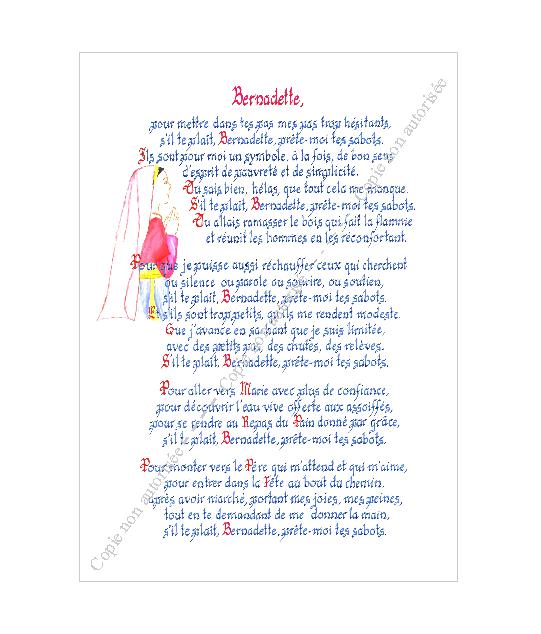 Bernadette,
pour mettre dans tes pas mes pas trop hésitants,
s'il te plaît, Bernadette, prête-moi tes sabots.
Ils sont pour moi un symbole, à la fois, de bon sens
d'esprit de pauvreté et de simplicité.
Tu sais bien, hélas, que tout cela me manque.
S'il te plaît, Bernadette, prête-moi tes sabots.
Tu allais ramasser le bois qui fait la flamme
et réunit les hommes en les réconfortant.
Pour que je puisse aussi réchauffer ceux qui cherchent
ou silence ou parole ou sourire, ou soutien,
s'il te plaît, Bernadette, prête-moi tes sabots.
Et s'ils sont trop petits, qu'ils me rendent modeste.
Que j'avance en sachant que je suis limitée,
avec des petits pas, des chutes, des relèves.
S'il te plaît, Bernadette, prête-moi tes sabots.
Pour aller vers Marie avec plus de confiance,
pour découvrir l'eau vive offerte aux assoiffés,
pour se rendre au Repas du Pain donné par grâce,
s'il te plaît, Bernadette, prête-moi tes sabots.
Pour monter vers le Père qui m'attend et qui m'aime,
pour entrer dans la Fête au bout du chemin.
après avoir marché, portant mes joies, mes peines,
tout en te demandant de me donner la main,
s'il te plaît, Bernadette, prête-moi tes sabots.
Copie non autorisée — Copie non autorisée — Copie non autorisée